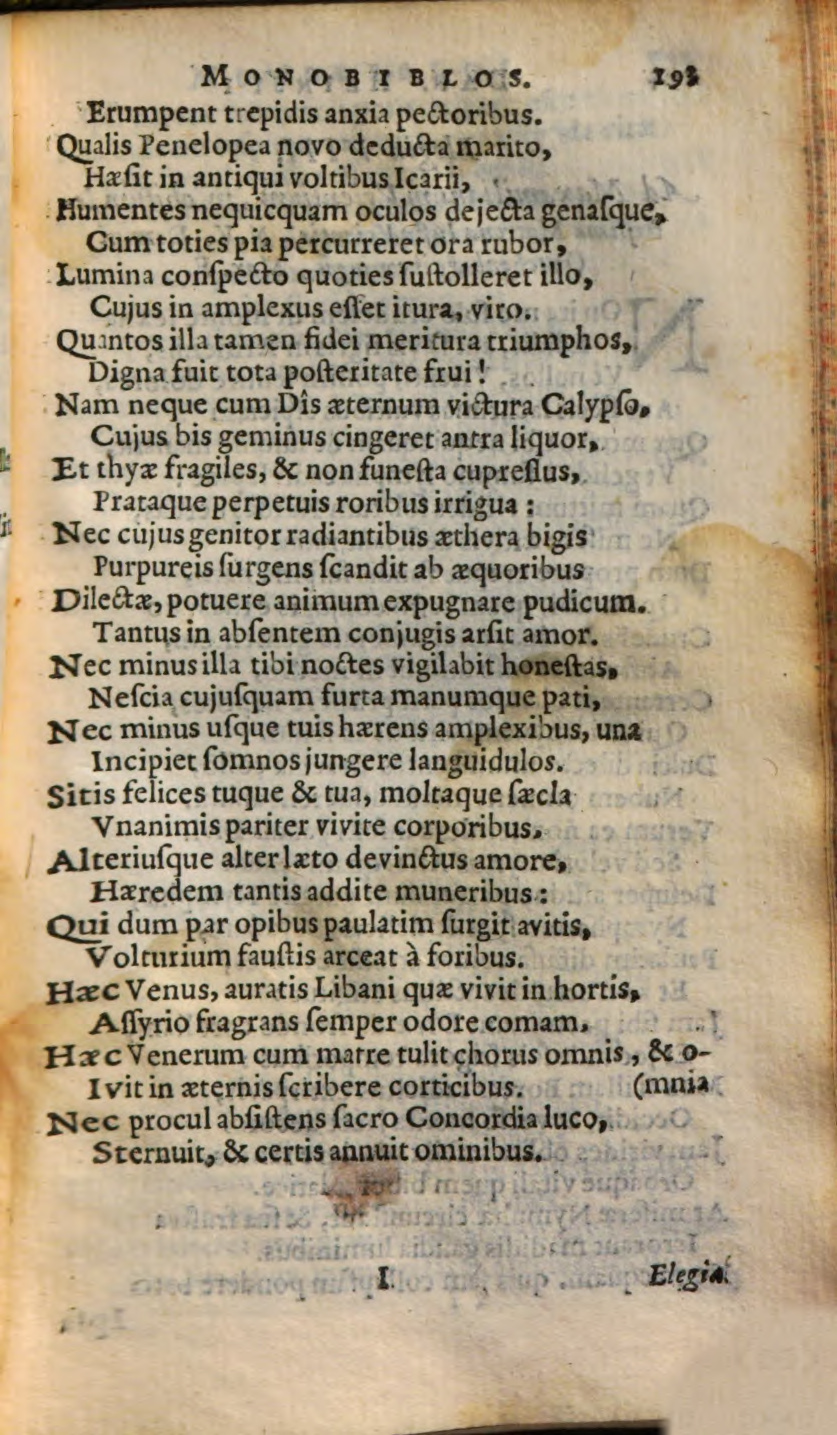 MONOBIBLOS. 198
Erumpent trepidis anxia pectoribus.
Qualis Penelopea novo deducta marito,
Hæſit in antiqui voltibus Icarii,
Humentes nequicquam oculos dejecta genaſque,
Cum toties pia percurreret ora rubor,
Lumina conſpecto quoties ſuſtolleret illo,
Cujus in amplexus eſſet itura, viro.
Quantos illa tamen fidei meritura triumphos,
Digna fuit tota poſteritate frui!
Nam neque cum Dîs æternum victura Calypſo,
Cujus bis geminus cingeret antra liquor,
Et thyæ fragiles, & non funeſta cupreſſus,
Prataque perpetuis roribus irrigua:
Nec cujus genitor radiantibus æthera bigis
Purpureis ſurgens ſcandit ab æquoribus
Dilectæ, potuere animum expugnare pudicum.
Tantus in abſentem conjugis arſit amor.
Nec minus illa tibi noctes vigilabit honeſtas,
Neſcia cujuſquam furta manumque pati,
Nec minus uſque tuis hærens amplexibus, una
Incipiet ſomnos jungere languidulos.
Sitis felices tuque & tua, moltaque ſæcla
Vnanimis pariter vivite corporibus.
Alteriuſque alter læto devinctus amore,
Hæredem tantis addite muneribus:
Qui dum par opibus paulatim ſurgit avitis,
Volturium fauſtis arceat à foribus.
Hæc Venus, auratis Libani quæ vivit in hortis,
Aſſyrio fragrans ſemper odore comam.
Hæc Venerum cum matre tulit chorus omnis, & o-
Ivit in æternis ſcribere corticibus. (mnia
Nec procul abſiſtens ſacro Concordia luco,
Sternuit, & certis annuit ominibus.
I Elegia.